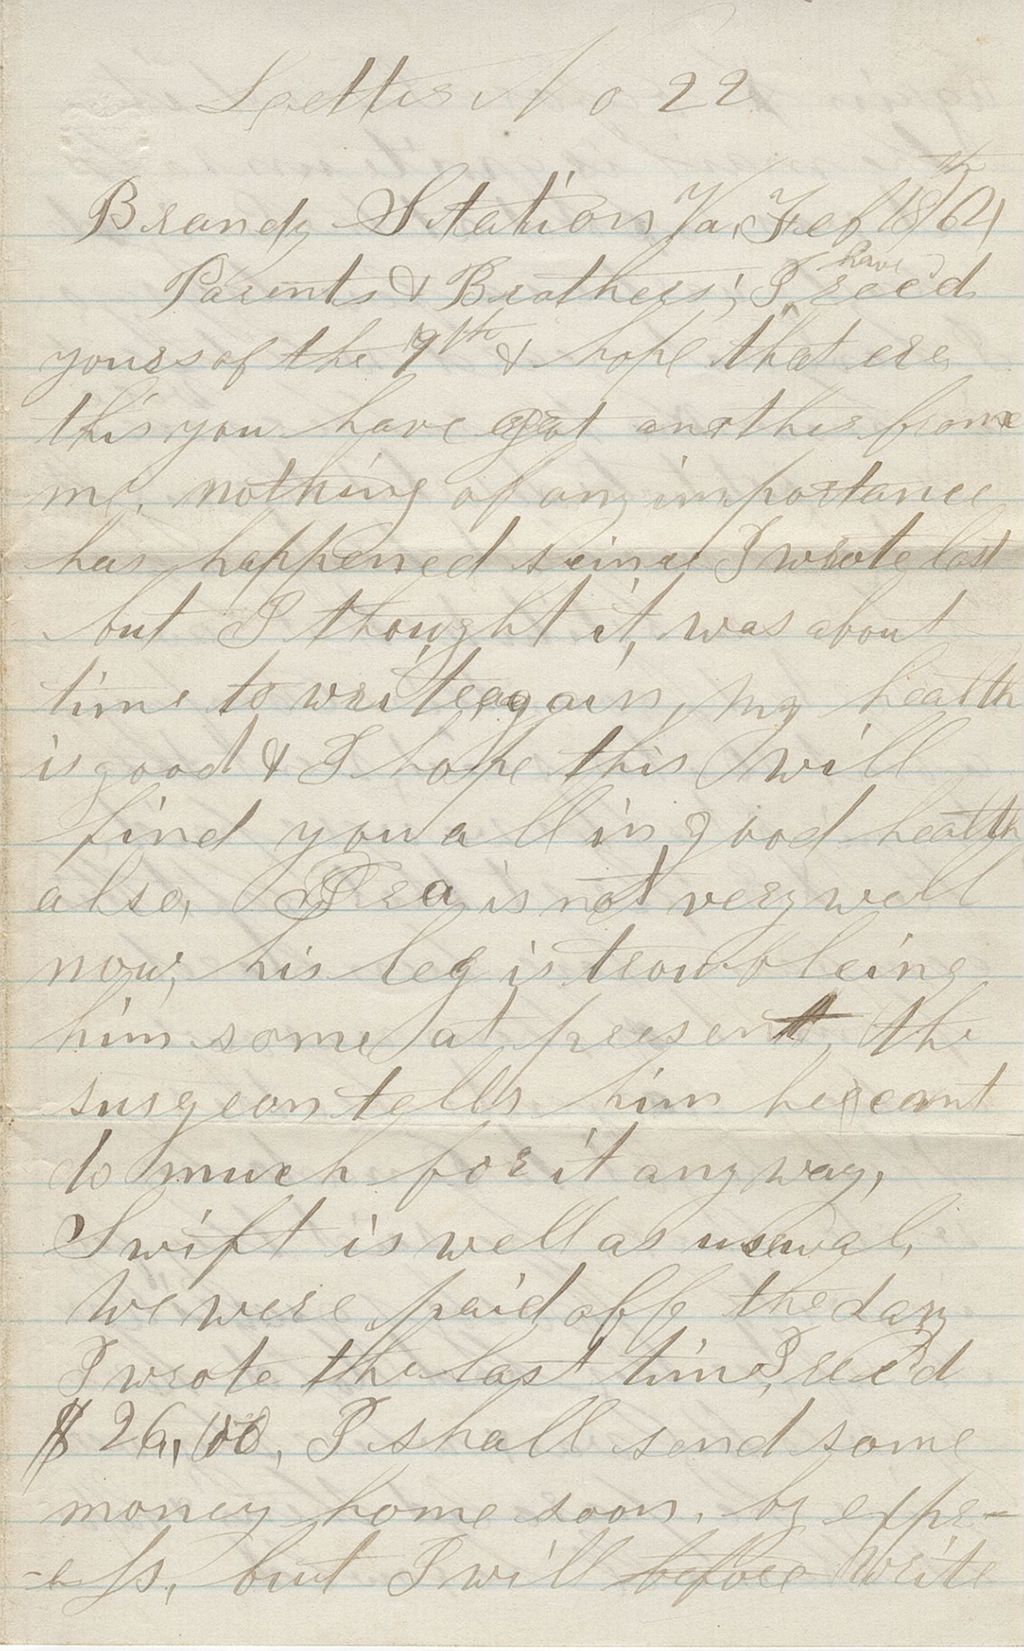 Letter No 22
Brandy Station Va, Feb 18th/64
Parents & Brothers; I have rec'd
yours of the 9th & hope that ere
this you have got another from
me. nothing of any importance
has happened since I wrote last
but I thought it, was about
time to write again, my health
is good & I hope this will
find you all in good health
also, Ira is not very well
now, his leg is troubleing
him some at present, the
surgeon tells him he cant
do much for it any way,
Swift is well as usewal,
We were paid off the day
I wrote the last time, I rec'd
$26,00, I shall send some
money home soon, by expre-
-ss, but I will before write